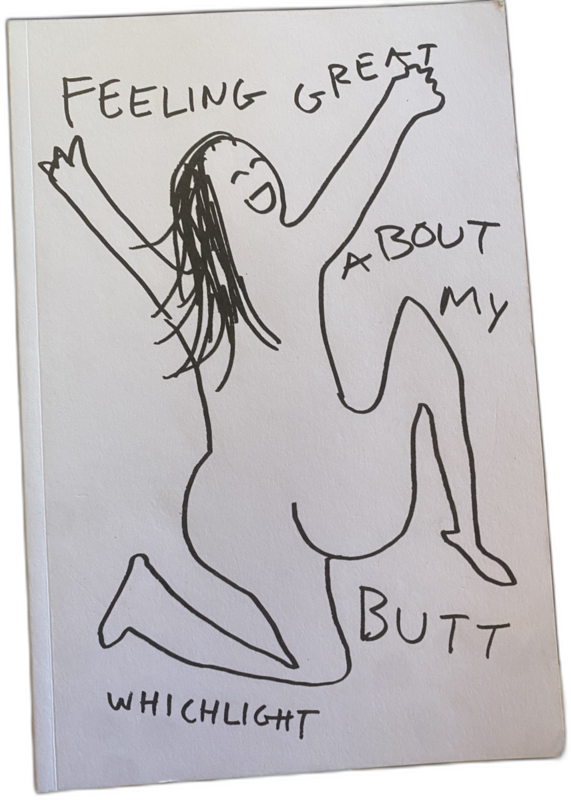 FEELING GREAT
ABOUT
MY
BUTT
WHICHLIGHT